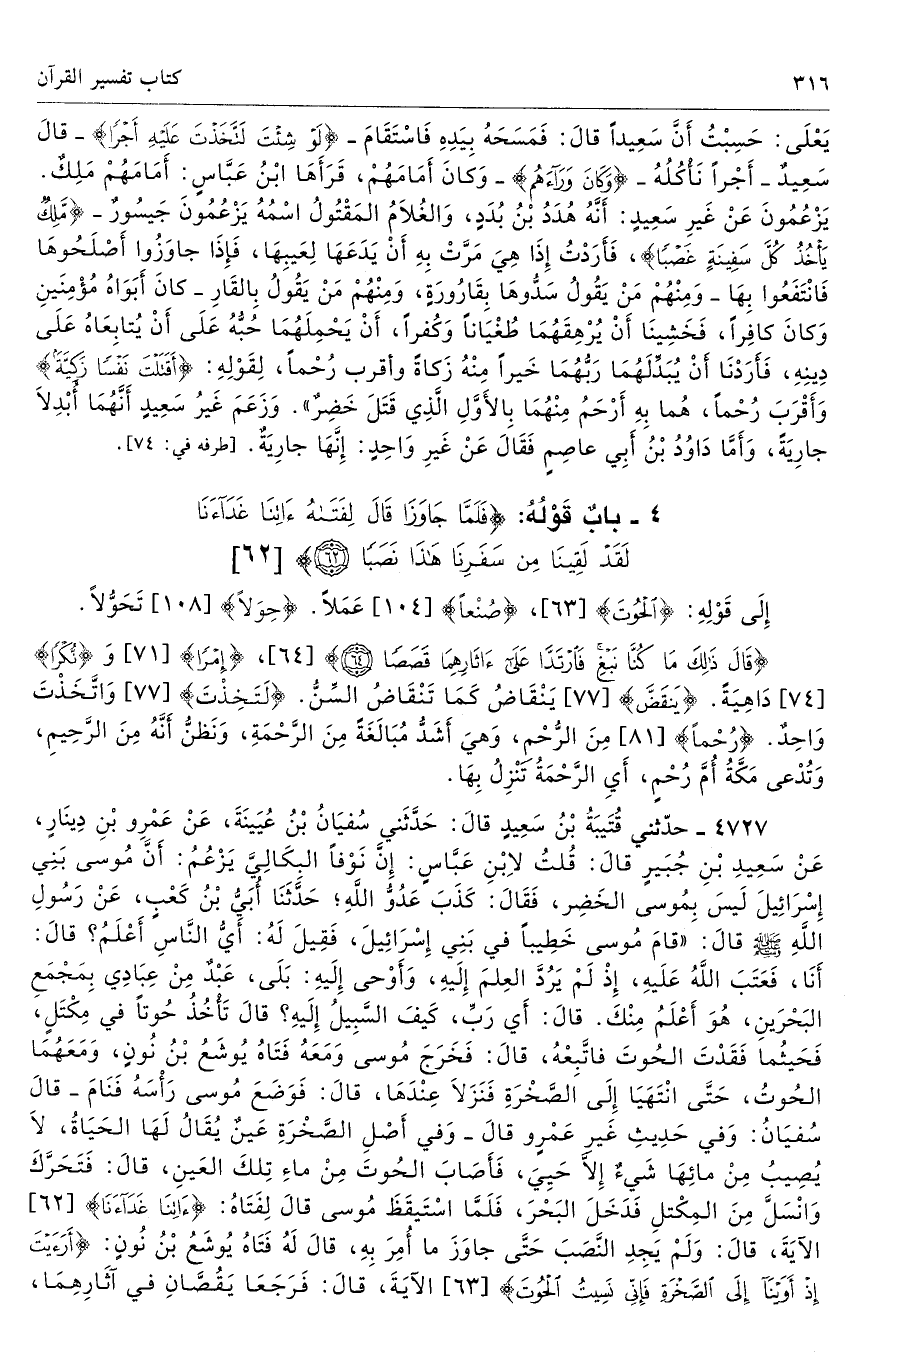 ٣١٦ كتاب تفسير القرآن
يَعْلَى: حَسِبْتُ أَنَّ سَعِيداً قالَ: فَمَسَحَهُ بِيَدِهِ فَاسْتَقَامَ ـ ﴿لَوْ شِئْتَ لَتَّخَذْتَ عَلَيْهِ أَجْرًا﴾ ـ قالَ
سَعِيدٌ ـ أَجْراً نَأْكُلُهُ ـ ﴿وَكَانَ وَرَآءَهُم﴾ ـ وَكانَ أَمَامَهُمْ، قَرَأَها ابْنُ عَبَّاسٍ: أَمَامَهُمْ مَلِكٌ.
يَزْعُمُونَ عَنْ غَيرِ سَعِيدٍ: أَنَّهُ هُدَدُ بْنُ بُدَدٍ، وَالغُلَامُ المَقْتُولُ اسْمُهُ يَزْعُمُونَ جَيسُورٌ ـ ﴿مَّلِكٌ
يَأْخُذُ كُلَّ سَفِينَةٍ غَصْبًا﴾، فَأَرَدْتُ إِذَا هِيَ مَرَّتْ بِهِ أَنْ يَدَعَهَا لِعَيبِهَا، فَإِذَا جاوَزُوا أَصْلَحُوهَا
فَانْتَفَعُوا بِهَا ـ وَمِنْهُمْ مَنْ يَقُولُ سَدُّوهَا بِقَارُورَةٍ، وَمِنْهُمْ مَنْ يَقُولُ بِالقَارِ ـ كانَ أَبَوَاهُ مُؤْمِنَينِ
وَكانَ كافِراً، فَخَشِينَا أَنْ يُرْهِقَهُمَا طُغْيَاناً وَكُفراً، أَنْ يَحْمِلَهُمَا حُبُّهُ عَلَى أَنْ يُتَابِعَاهُ عَلَى
دِينِهِ، فَأَرَدْنَا أَنْ يُبَدِّلَهُمَا رَبُّهُمَا خَيراً مِنْهُ زَكاةً وأقرب رُحْماً، لِقَوْلِهِ: ﴿أَقَتَلْتَ نَفْسًا زَكِيَّةً﴾
وَأَقْرَبَ رُحْماً، هُما بِهِ أَرْحَمُ مِنْهُمَا بِالأَوَّلِ الَّذِي قَتَلَ خَضِرٌ». وَزَعَمَ غَيرُ سَعِيدٍ أَنَّهُمَا أُبْدِلاَ
جارِيَةً، وَأَمَّا دَاوُدُ بْنُ أَبِي عاصِمٍ فَقَالَ عَنْ غَيرِ وَاحِدٍ: إِنَّهَا جارِيَةٌ. [طرفه في: ٧٤].
٤ ـ بابٌ قَوْلُهُ: ﴿فَلَمَّا جَاوَزَا قَالَ لِفَتَىٰهُ ءَاتِنَا غَدَآءَنَا
لَقَدْ لَقِينَا مِن سَفَرِنَا هَٰذَا نَصَبًا ۝٦٢﴾ [٦٢]
إِلَى قَوْلِهِ: ﴿الْحُوتَ﴾ [٦٣]، ﴿صُنْعاً﴾ [١٠٤] عَمَلاً. ﴿حِوَلاً﴾ [١٠٨] تَحَوُّلاً.
﴿قَالَ ذَٰلِكَ مَا كُنَّا نَبْغِ فَٱرْتَدَّا عَلَىٰٓ ءَاثَارِهِمَا قَصَصًا ۝٦٤﴾ [٦٤]، ﴿إِمْرًا﴾ [٧١] وَ ﴿نُّكْرًا﴾
[٧٤] دَاهِيَةً. ﴿يَنقَضَّ﴾ [٧٧] يَنْقَاضُ كَمَا تَنْقَاضُ السِّنُّ. ﴿لَتَخِذْتَ﴾ [٧٧] وَاتَّخَذْتَ
وَاحِدٌ. ﴿رُحْماً﴾ [٨١] مِنَ الرُّحْمِ، وَهيَ أَشَدُّ مُبَالَغَةً مِنَ الرَّحْمَةِ، وَنَظُنُّ أَنَّهُ مِنَ الرَّحِيمِ،
وَتُدْعى مَكَّةُ أُمَّ رُحْمٍ، أَيِ الرَّحْمَةُ تَنْزِلُ بِهَا.
٤٧٢٧ ـ حدّثني قُتَيبَةُ بْنُ سَعِيدٍ قالَ: حَدَّثَني سُفيَانُ بْنُ عُيَينَةَ، عَنْ عَمْرِو بْنِ دِينَارٍ،
عَنْ سَعِيدِ بْنِ جُبَيرٍ قالَ: قُلتُ لاِبْنِ عَبَّاسٍ: إِنَّ نَوْفاً البِكَالِيَّ يَزْعُمُ: أَنَّ مُوسى بَنِي
إِسْرَائِيلَ لَيسَ بِمُوسى الخَضِرِ، فَقَالَ: كَذَبَ عَدُوُّ اللَّهِ؛ حَدَّثَنَا أُبَيُّ بْنُ كَعْبٍ، عَنْ رَسُولِ
اللَّهِ ﷺ قالَ: «قامَ مُوسى خَطِيباً في بَنِي إِسْرَائِيلَ، فَقِيلَ لَهُ: أَيُّ النَّاسِ أَعْلَمُ؟ قالَ:
أَنَا، فَعَتَبَ اللَّهُ عَلَيهِ، إِذْ لَمْ يَرُدَّ العِلمَ إِلَيهِ، وَأَوْحى إِلَيهِ: بَلَى، عَبْدٌ مِنْ عِبَادِي بِمَجْمَعِ
البَحْرَينِ، هُوَ أَعْلَمُ مِنْكَ. قالَ: أَي رَبِّ، كَيفَ السَّبِيلُ إِلَيهِ؟ قالَ تَأْخُذُ حُوتاً في مِكْتَلٍ،
فَحَيثُما فَقَدْتَ الحُوتَ فاتَّبِعْهُ، قالَ: فَخَرَجَ مُوسى وَمَعَهُ فَتَاهُ يُوشَعُ بْنُ نُونٍ، وَمَعَهُمَا
الحُوتُ، حَتَّى انْتَهَيَا إِلَى الصَّخْرَةِ فَنَزَلاَ عِنْدَهَا، قالَ: فَوَضَعَ مُوسى رَأْسَهُ فَنَامَ ـ قالَ
سُفيَانُ: وَفي حَدِيثِ غَيرِ عَمْرٍو قالَ ـ وَفي أَصْلِ الصَّخْرَةِ عَينٌ يُقَالُ لَهَا الحَيَاةُ، لاَ
يُصِيبُ مِنْ مائِهَا شَيءٌ إِلاَّ حَيِيَ، فَأَصَابَ الحُوتَ مِنْ ماءِ تِلكَ العَينِ، قالَ: فَتَحَرَّكَ
وَانْسَلَّ مِنَ المِكْتلِ فَدَخَلَ البَحْرَ، فَلَمَّا اسْتَيقَظَ مُوسى قالَ لِفَتَاهُ: ﴿ءَاتِنَا غَدَآءَنَا﴾ [٦٢]
الآيَةَ، قالَ: وَلَمْ يَجِدِ النَّصَبَ حَتَّى جاوَزَ ما أُمِرَ بِهِ، قالَ لَهُ فَتَاهُ يُوشَعُ بْنُ نُونٍ: ﴿أَرَءَيْتَ
إِذْ أَوَيْنَآ إِلَى ٱلصَّخْرَةِ فَإِنِّي نَسِيتُ ٱلْحُوتَ﴾ [٦٣] الآيَةَ، قالَ: فَرَجَعَا يَقُصَّانِ في آثَارِهِمَا،